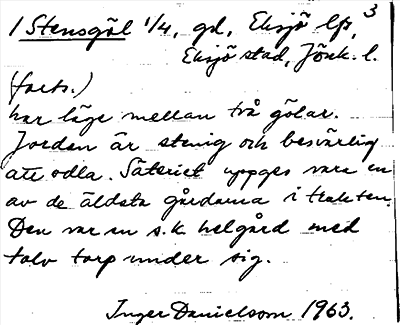 1 Stensgöl 1/4, gd, Eksjö lfs, 3
Eksjö stad, Jönk. l.
(forts.)
har läge mellan två gölar.
Jorden är stenig och besvärlig
att odla. Säteriet uppges vara en
av de äldsta gårdarna i trakten.
Den var en s.k helgård med
tolv torp under sig.
Inger Danielsson 1963.